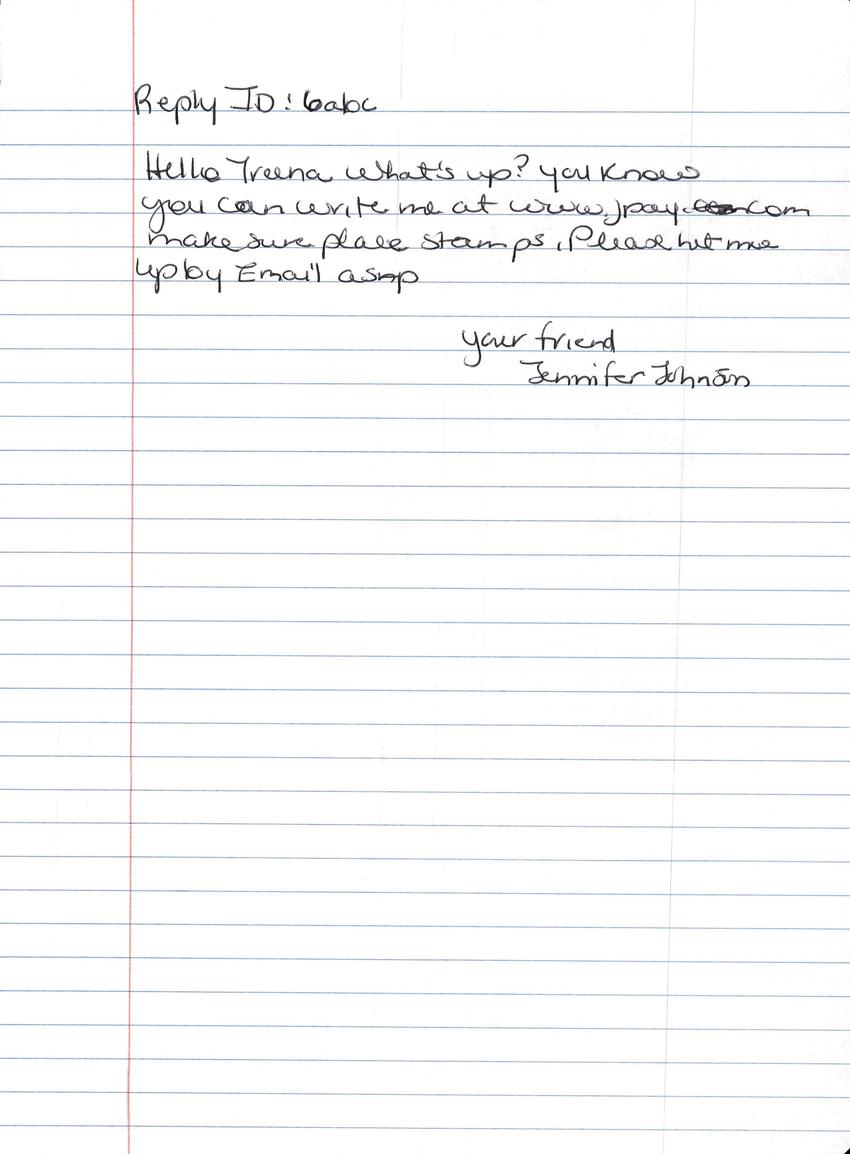 Reply ID: 6abc
Hello Treena what's up? you know
you can write me at www.jpay.com
make sure place stamps, Please hit me
up by Email asap
your friend
Jennifer Johnson